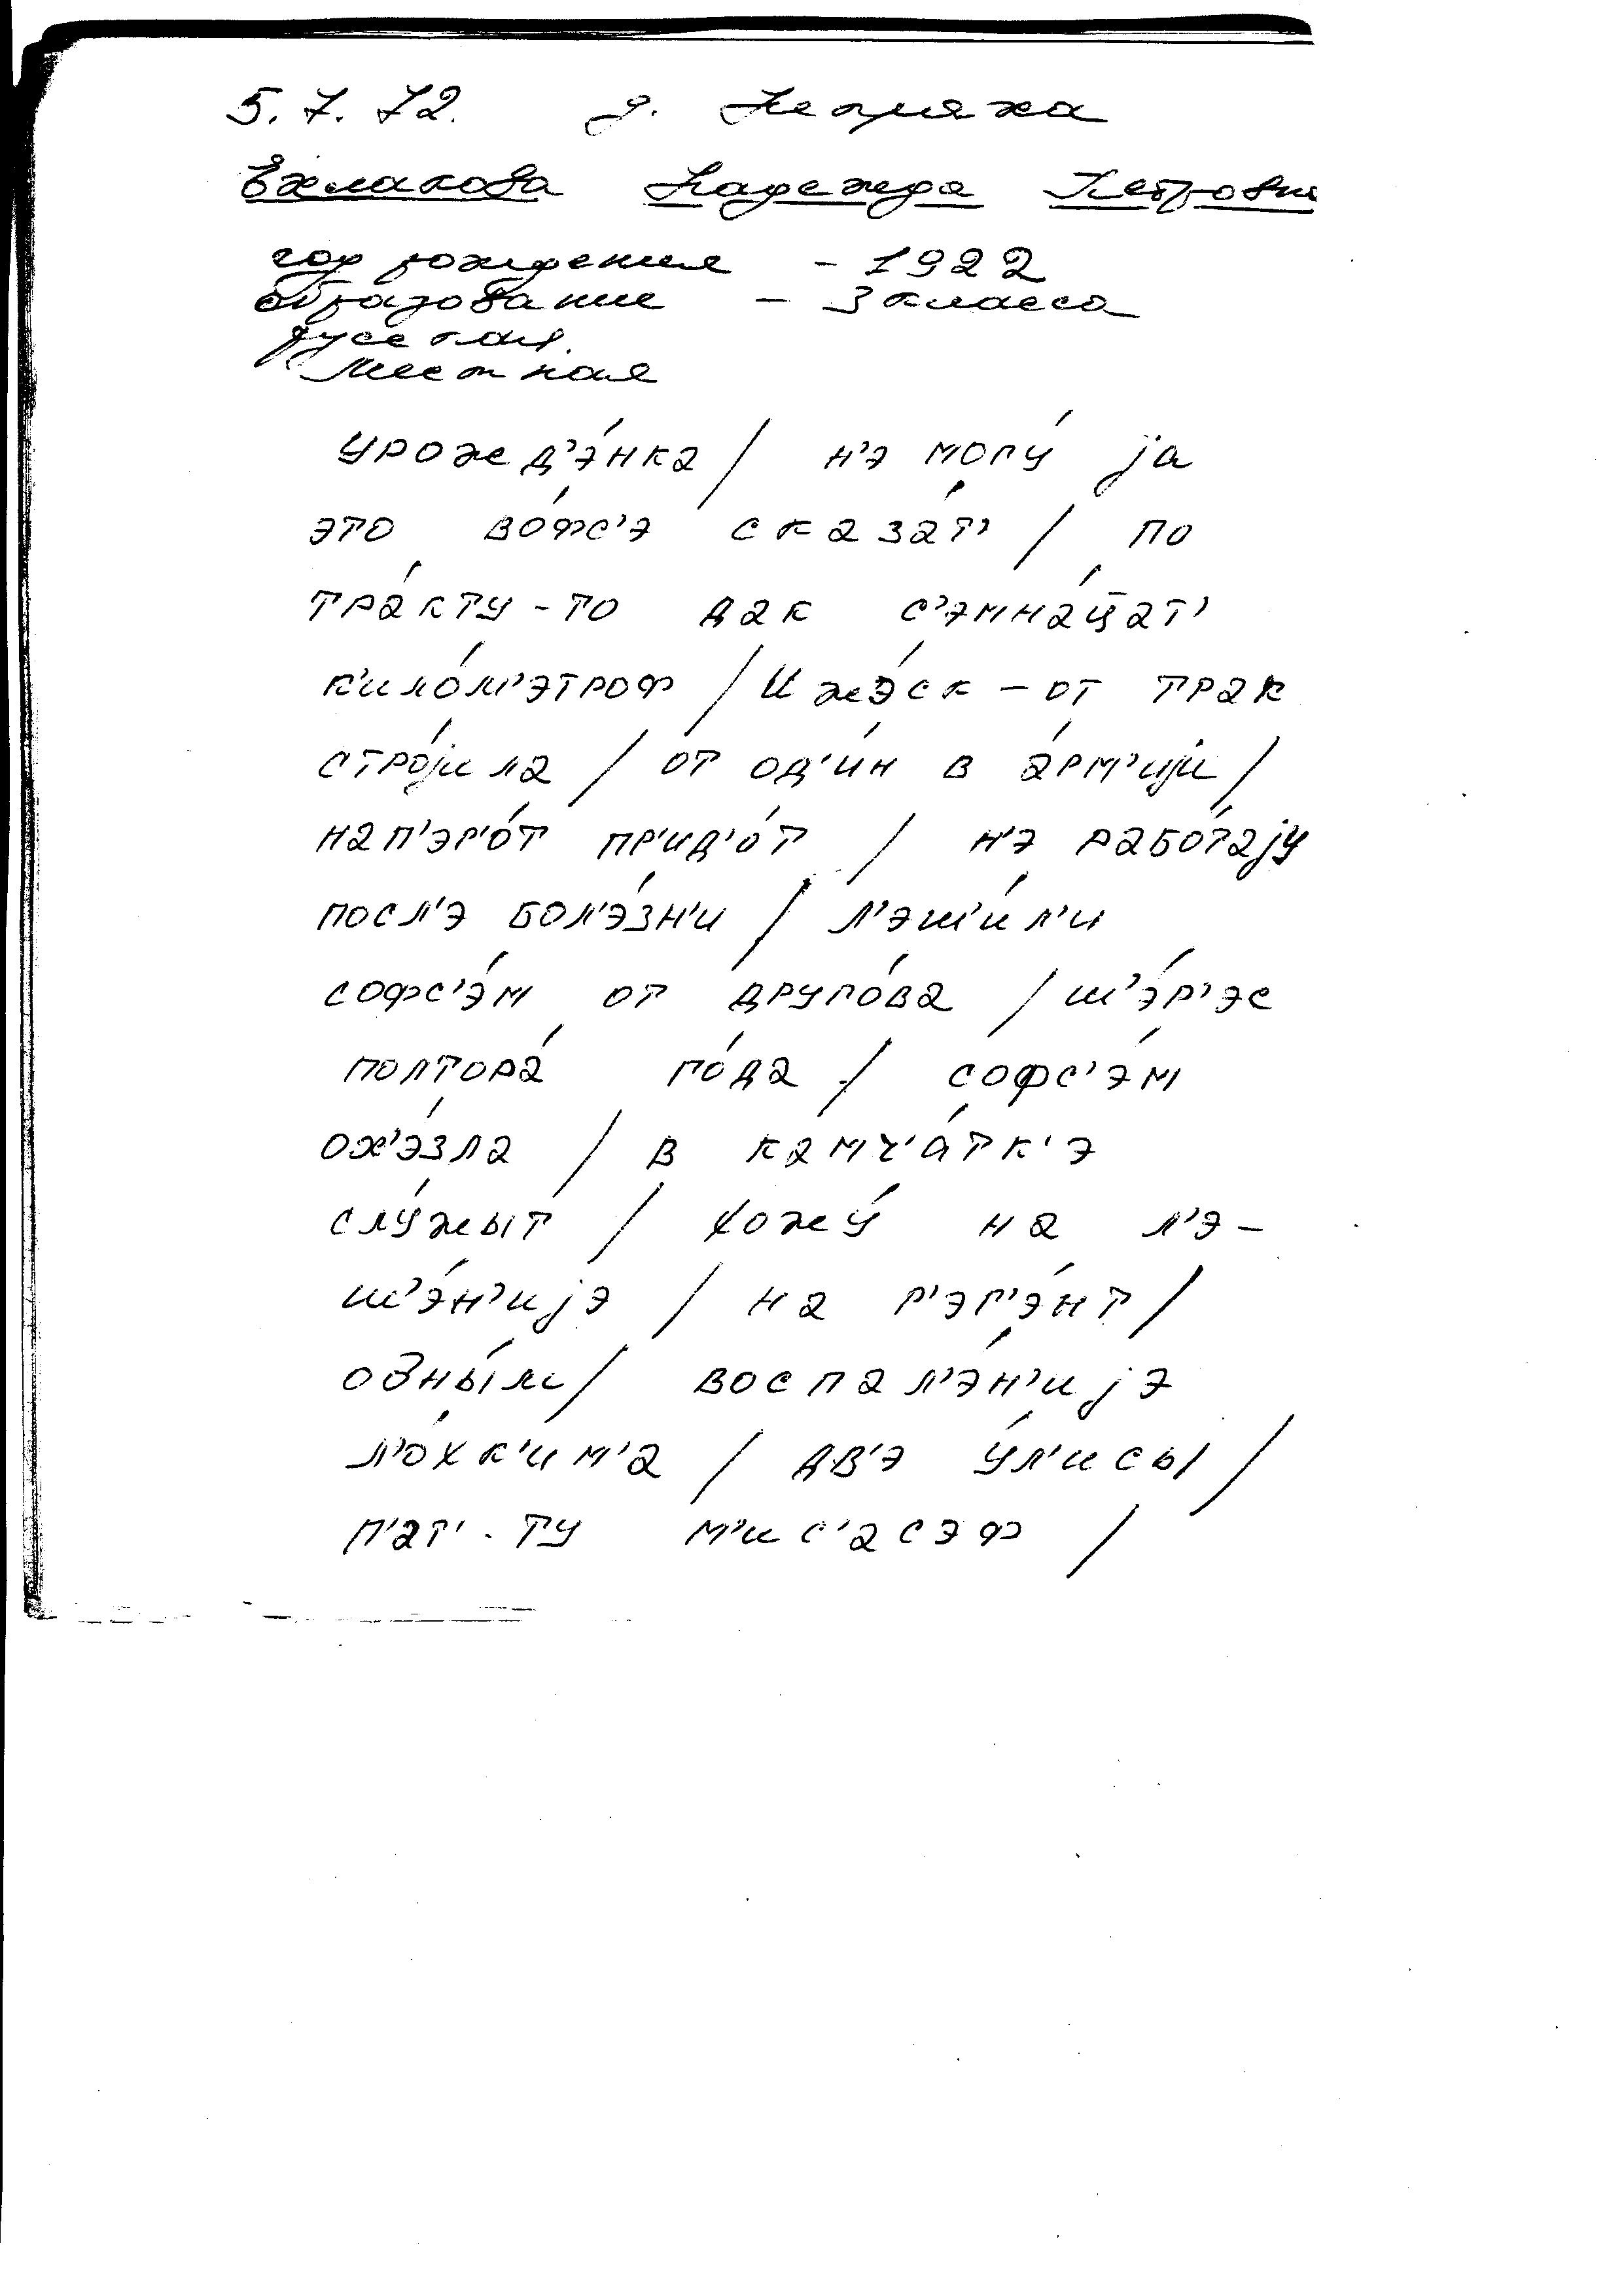 5.7.72. д. Непряха
Ехлакова Надежда Петровн
год рождения - 1922
образование - 3 класса
русская.
Местная
урожд'э́нка / н'э могу́ jа
это во́фс'э сказа́т' / по
тра́кту-то дак с'эмна́ц̄ат'
к'ило́м'этроф / Ижэ́ск - от трак
стро́jила / от од'и́н в а́рм'иjи /
нап'эр'о́т пр'ид'о́т / н'э рабо́таjу
посл'э бол'э́зн'и / л'эш'и́л'и
софс'э́м от друго́ва / ш'э́р'эс
полтора́ го́да / софс'э́м
ож'э́зла / в камч'а́тк'э
слу́жыт / хожу́ на л'э-
ш'э́н'иjэ / на р'эг'э́нт /
одны́м / воспал'э́н'иjэ
л'о́хк'им'а / дв'э у́л'исы /
п'ат'-ту м'ис'асэф /